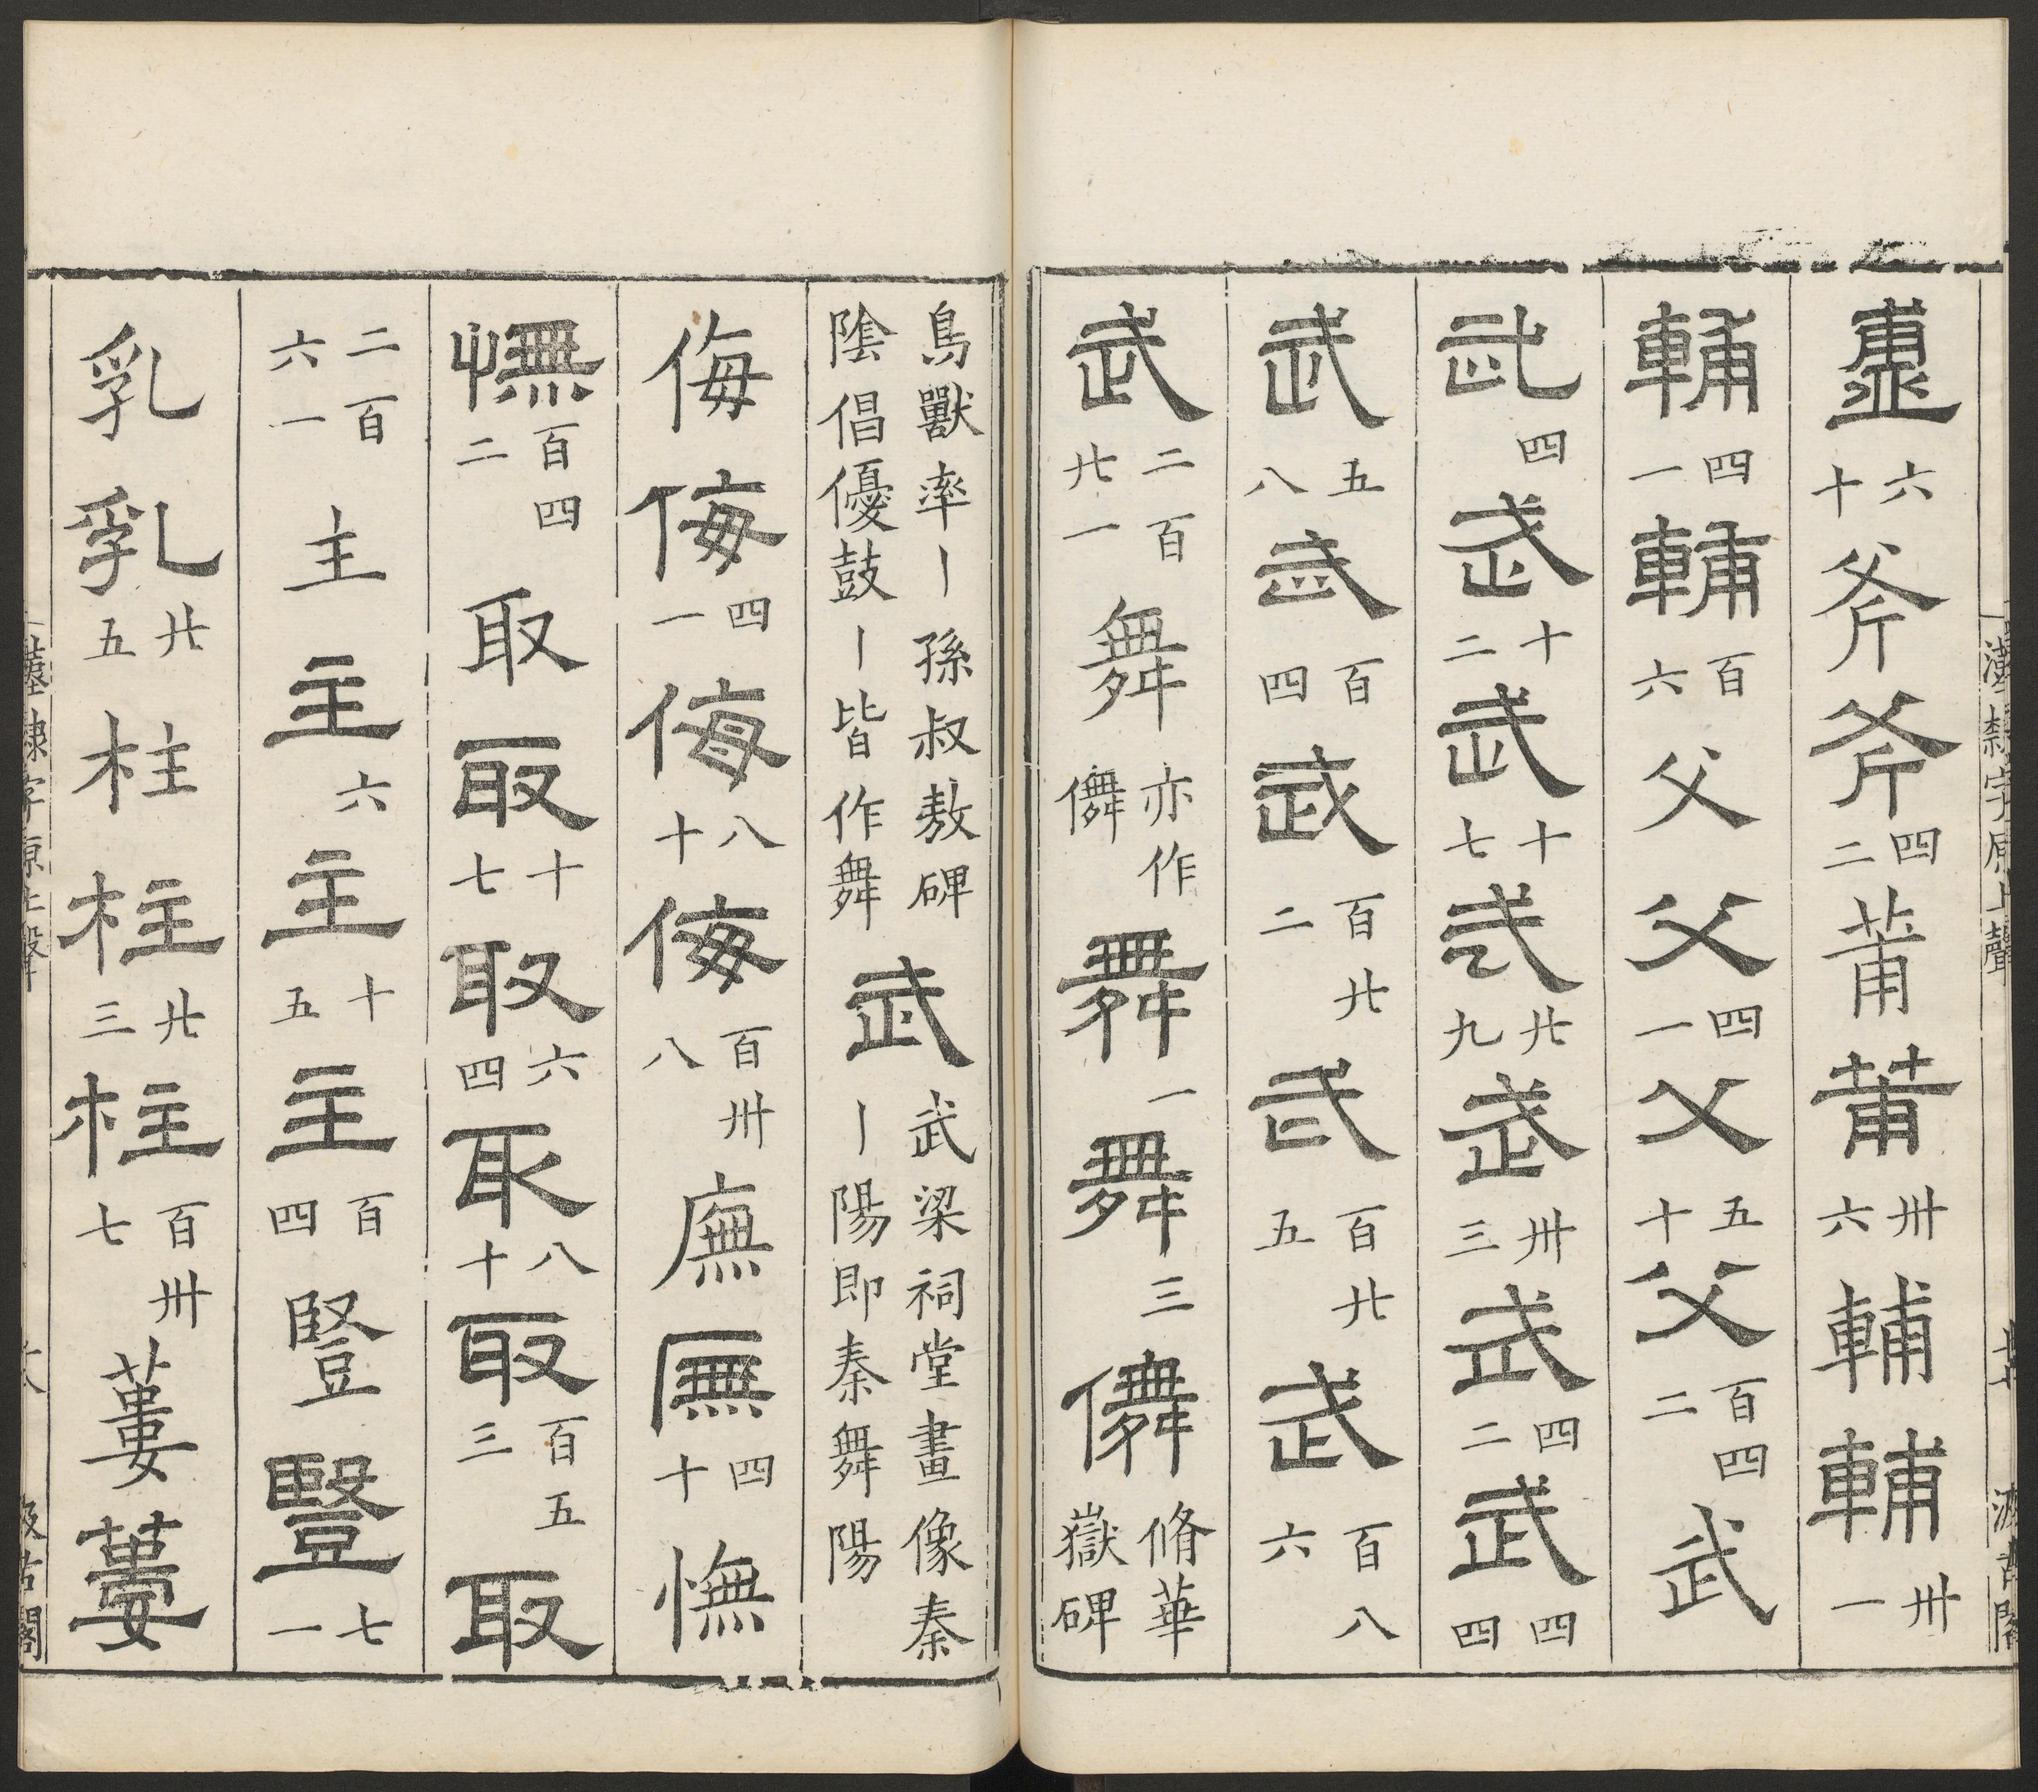 六十斧斧四二莆莆卅六輔輔卅一
輔四一輔百六父父四一父五十父百四二武
武四武十二武十七武廿九武卅三武四二武四四
武五八武百四武百廿二武百廿五武百八六
武二百廿一舞亦作儛舞一舞三儛脩華嶽碑
鳥獸率丨孫叔敖碑陰倡優鼓丨丨皆作舞武武梁祠堂畫像秦丨陽即秦舞陽
侮侮四一侮八十侮百卅八廡廡四十憮
憮百四二取取十七取六四取八十取百五三取
二百六一主主六主十五主百四豎豎七一
乳乳廿五柱柱廿三柱百卅七蔞蔞
漢隸字原上聲
汲古閣